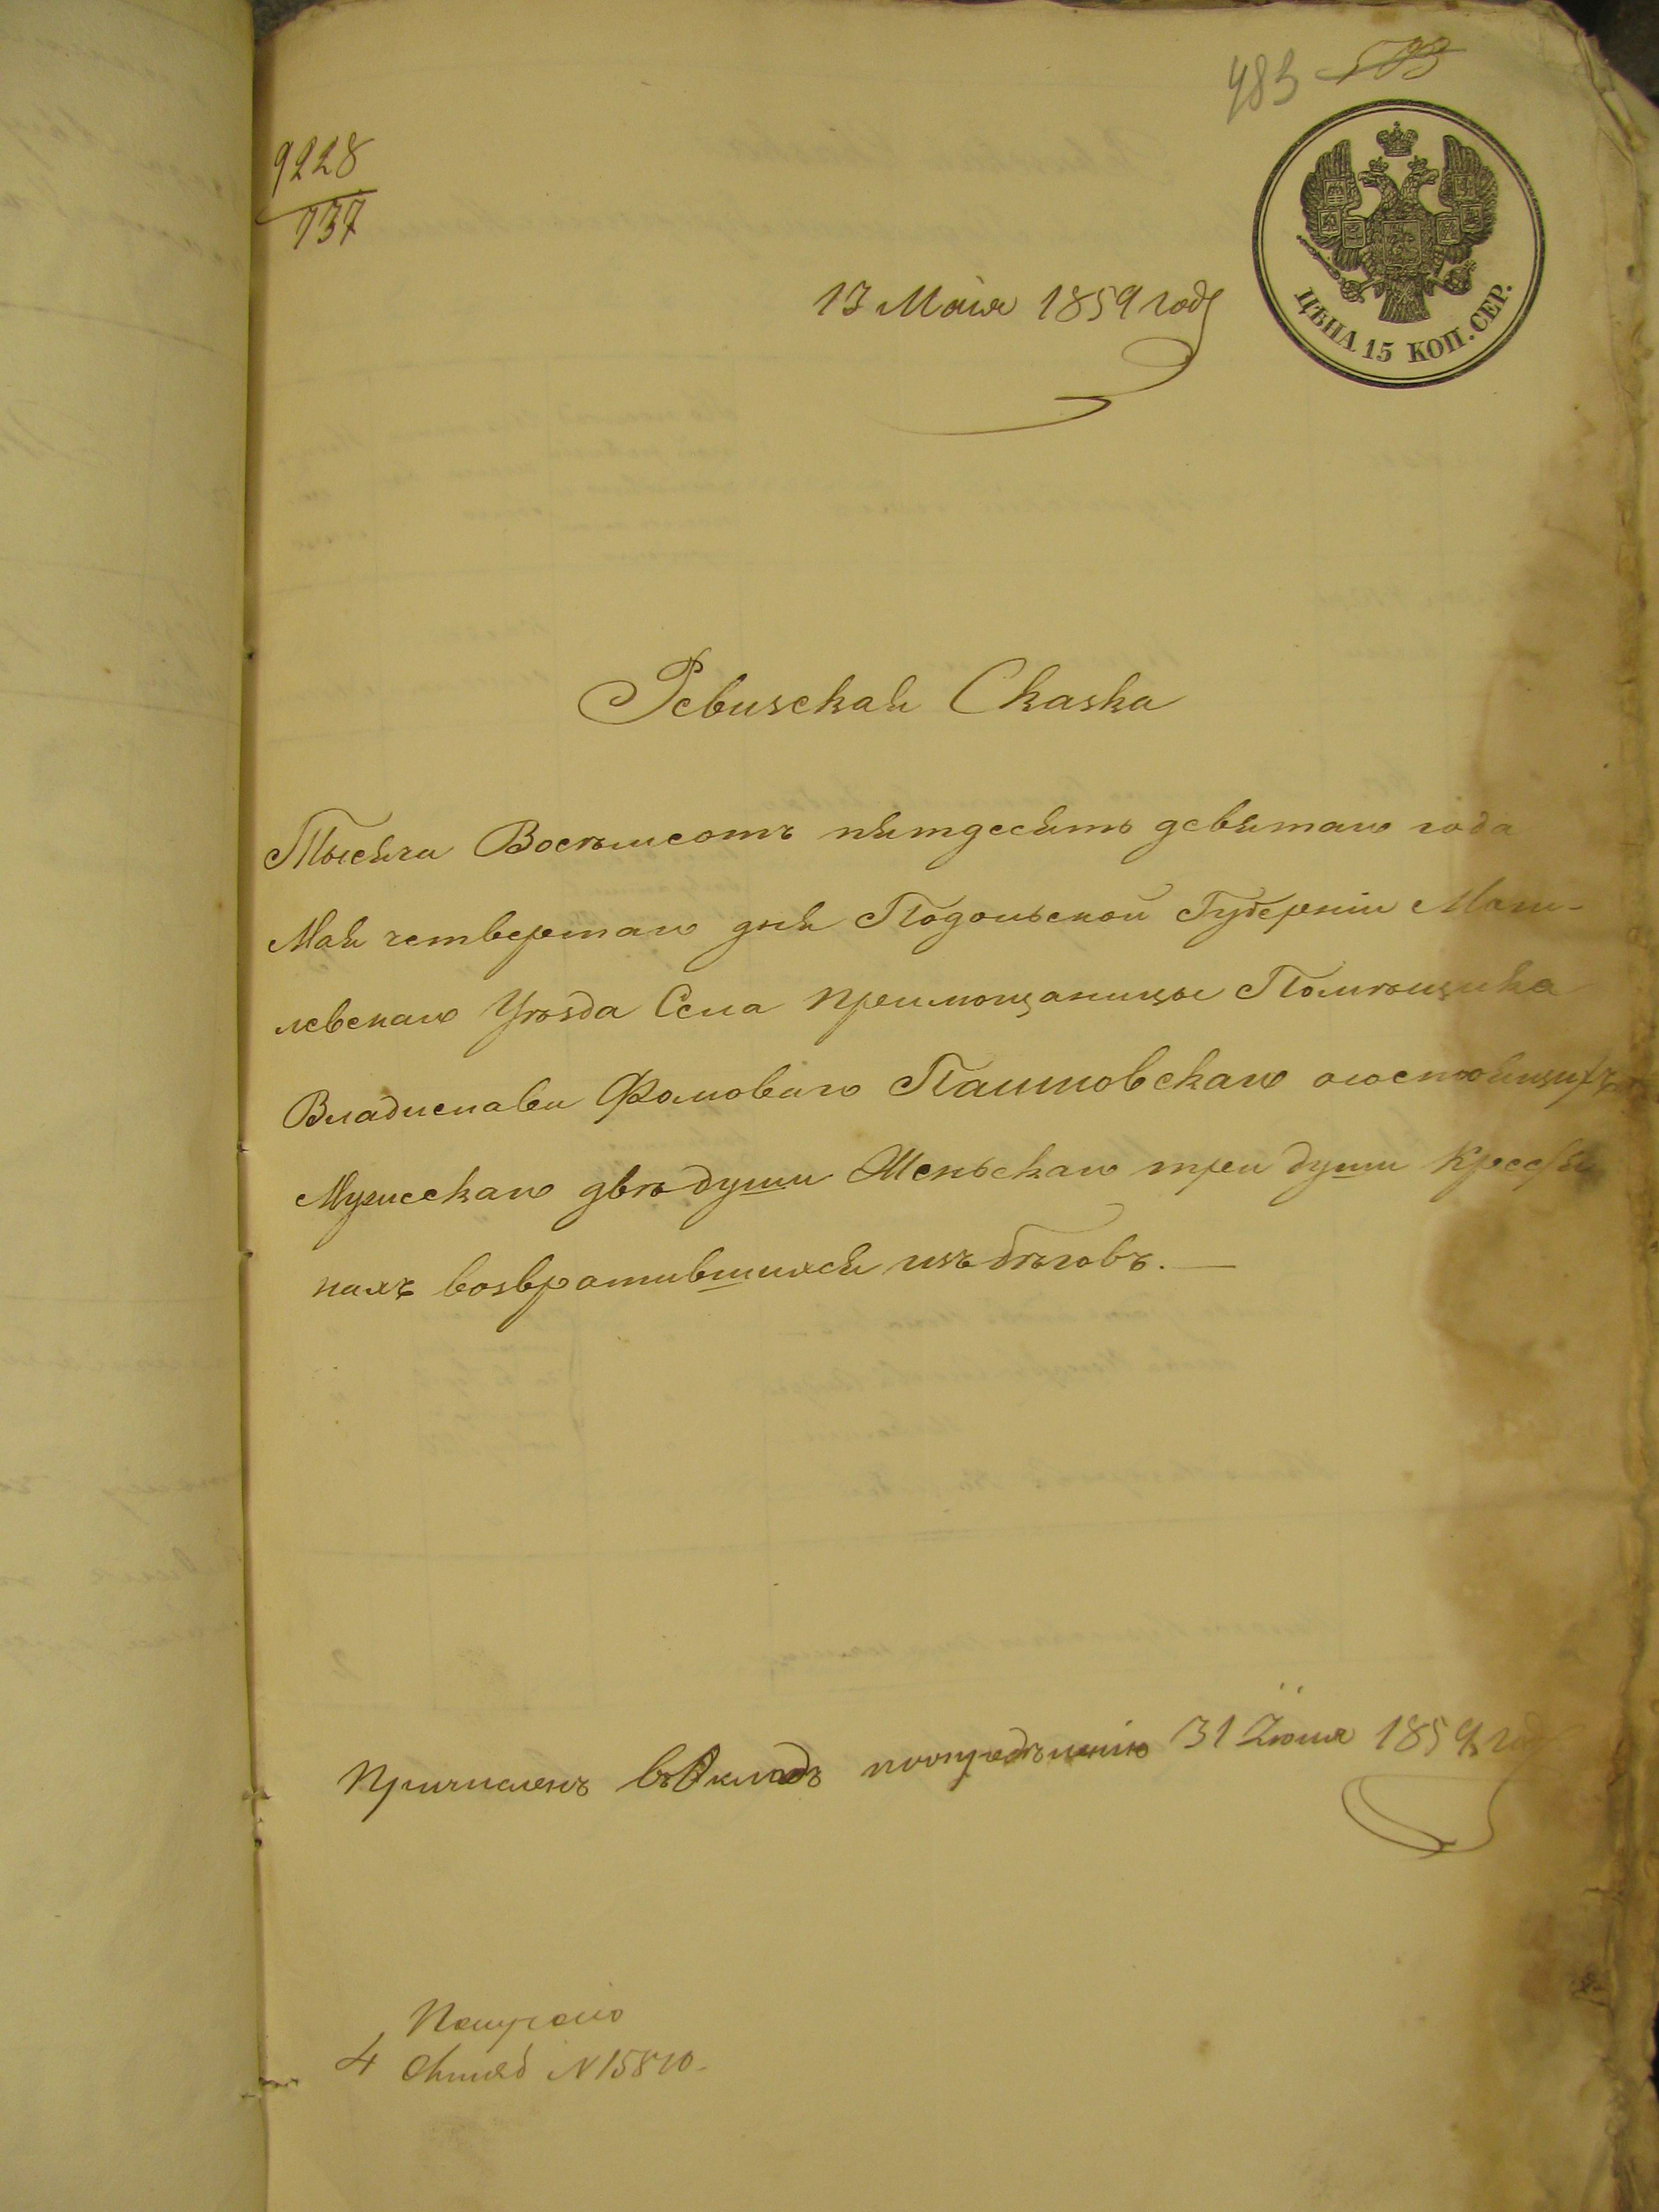 483 593
9228
737
13 Маія 1859 года
ЦѢНА 15 КОП. СЕР.
Ревизская Сказка
Тысяча Восѣмсотъ пятдесятъ девятаго года
Мая четвертаго дня Подольской Губерніи Моги-
левскаго Уѣзда Села Примощаницы Помѣщика
Владислава Фомоваго Пашковскаго остоящихъ
Мужескаго двѣ души Женьскаго три души Крестья
нахъ возвратившихся изъ бѣговъ. —
Причисленъ въ Окладъ поопредѣленію 31 Іюля 1859 года
4 Октяб N 15810